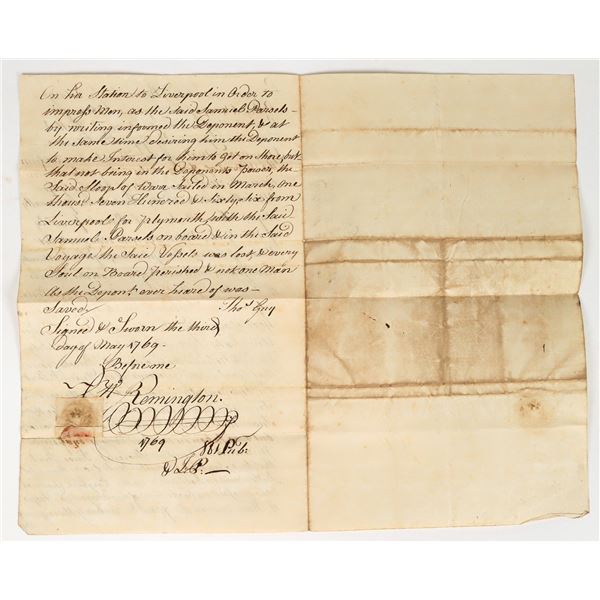 On his Station to Liverpool in Order to
impress Men, as the Said Samuel Parsels
by writing informed the Deponent, & at
the Same time desiring him the Deponent
to make Interest for him to get on Shore, but
that not being in the Deponents Power, the
Said Sloop of War Sailed in March, One
thous.d Seven Hundred & Sixty Six from
Liverpool for Plymouth, with the Said
Samuel Parsels on board & in the Said
Voyage the Said Vessels was lost & every
Soul on Board perished & not one Man
as the Depon.t ever heard of was
Saved Tho.s Guy
Signed & Sworn the third
day of May 1769.
Before me
Remington.
1769 Not Pub: